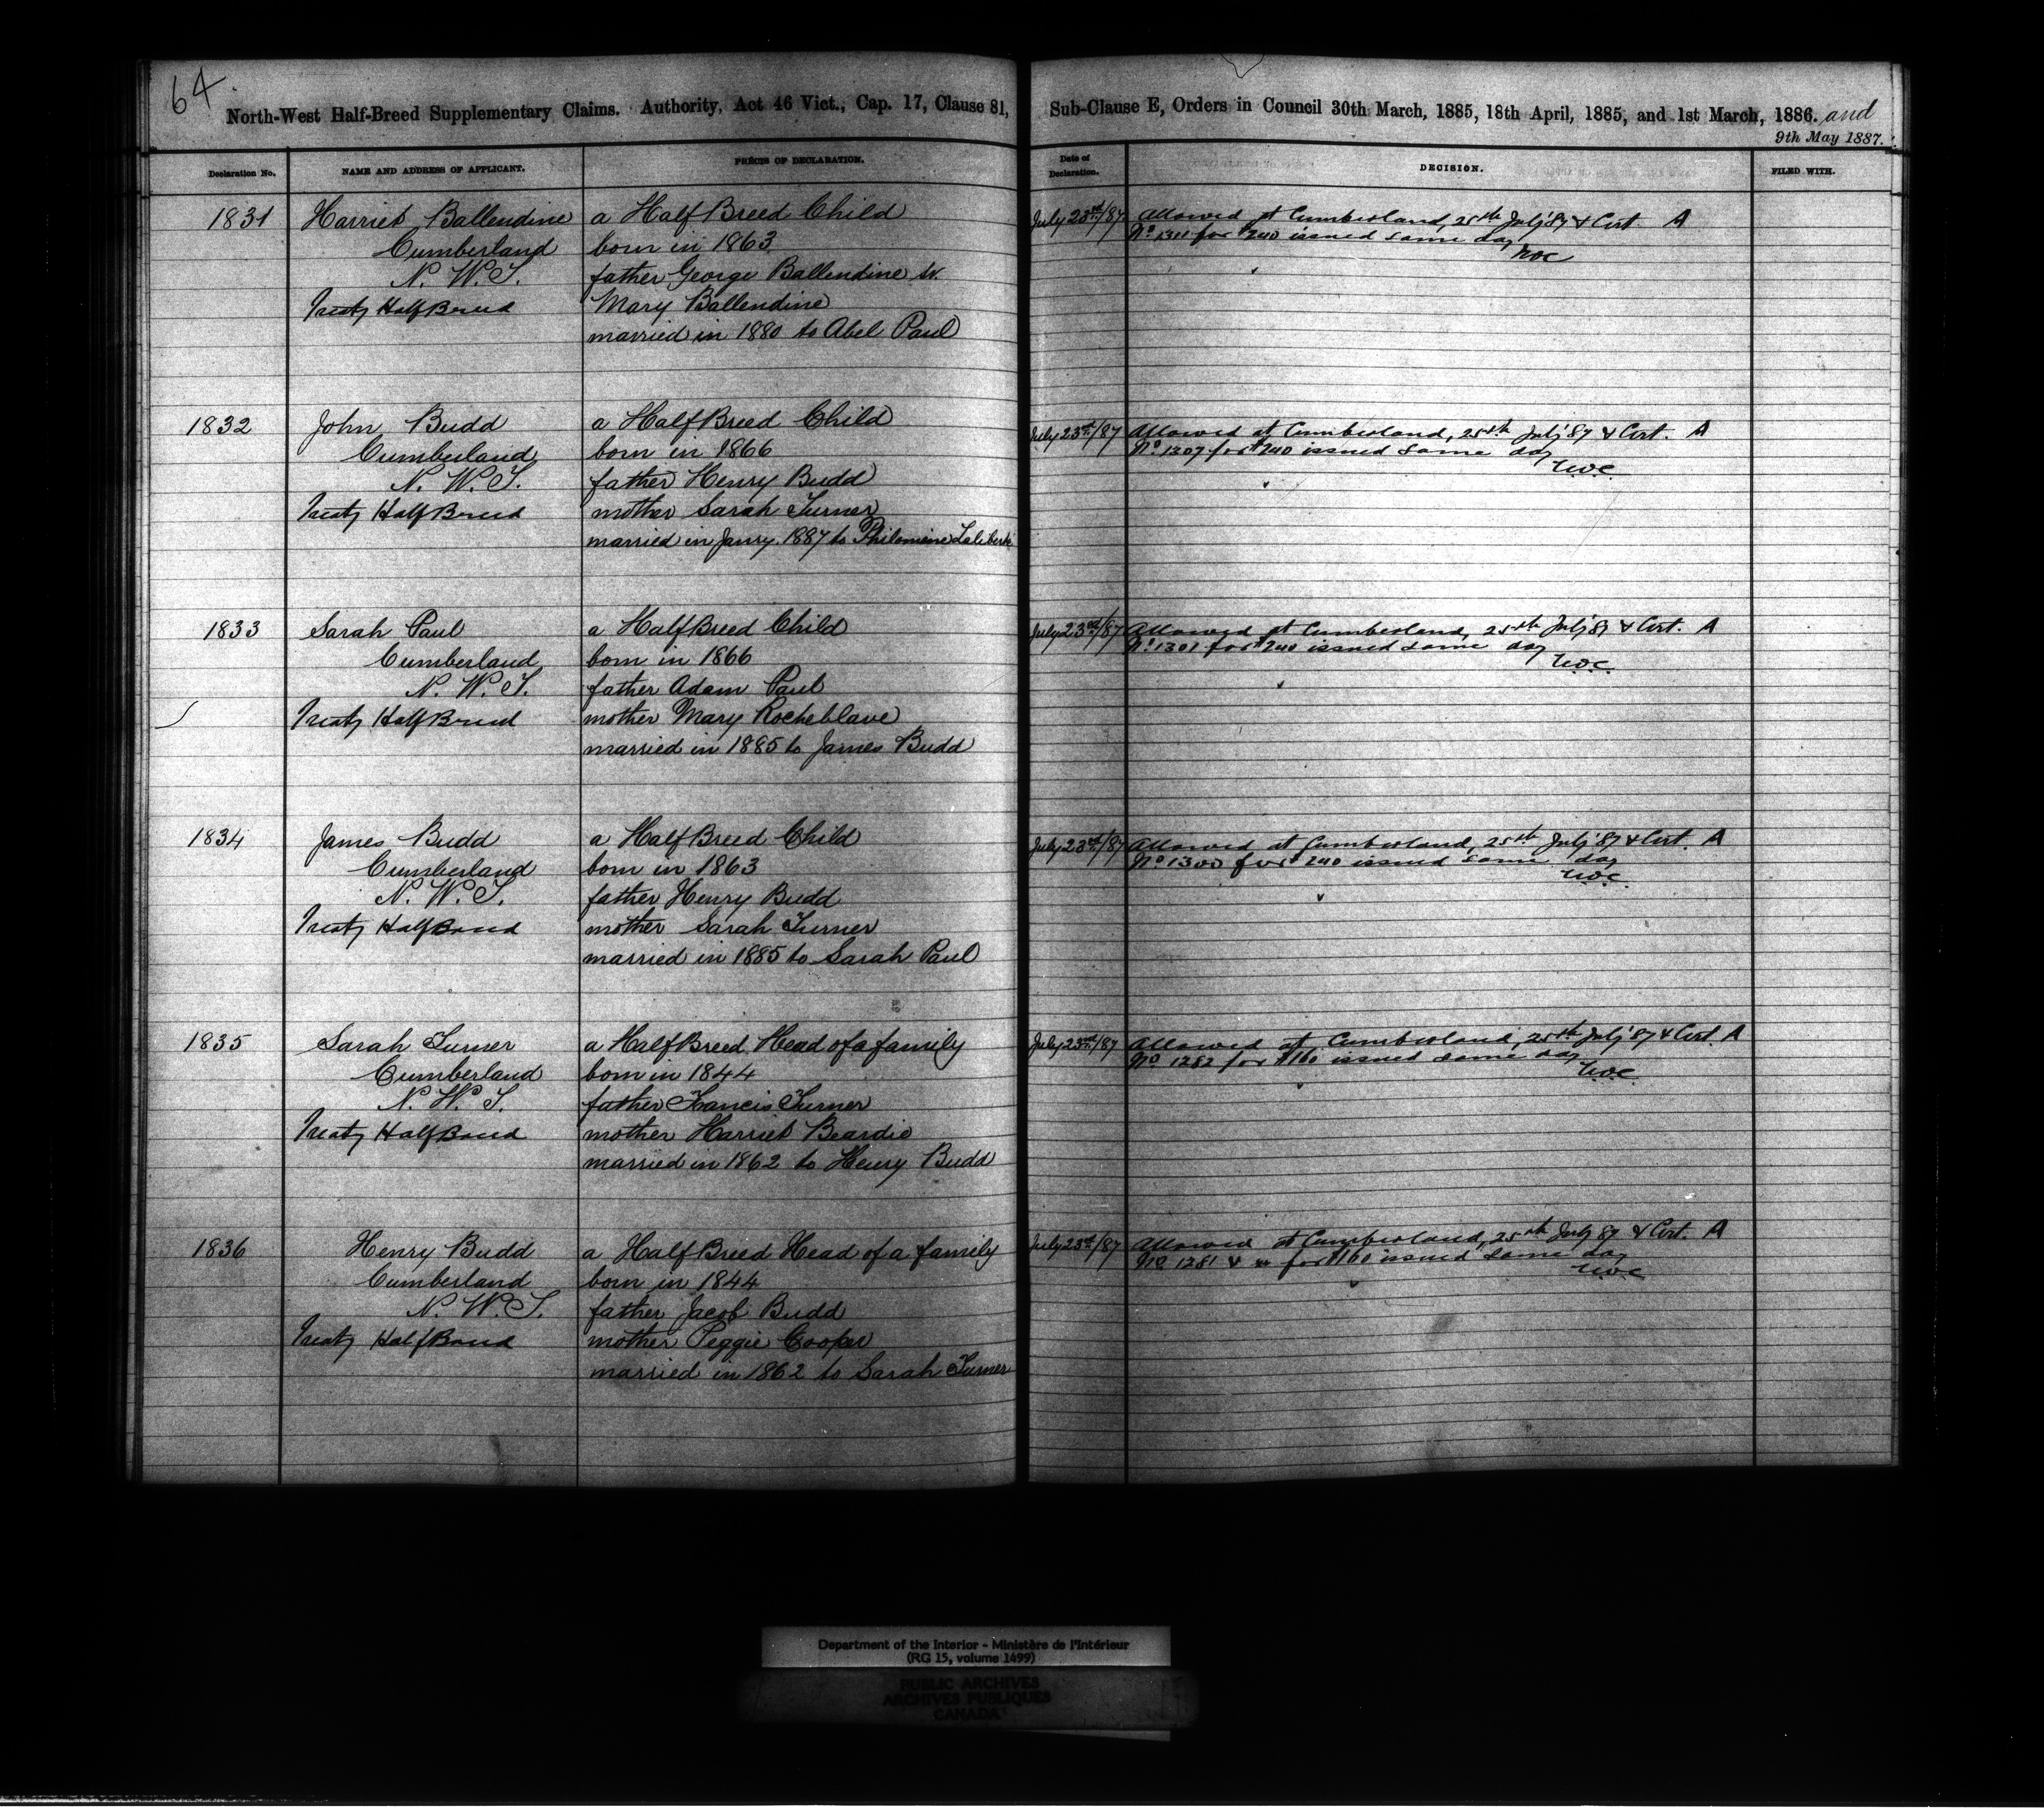 64.
North-West Half-Breed Supplementary Claims. Authority, Act 46 Vict., Cap. 17, Clause 81,
Declaration No.
NAME AND ADDRESS OF APPLICANT.
PRÉCIS OF DECLARATION.
1831 Harriet Ballendine a HalfBreed Child
Cumberland born in 1863
N. W. T. father George Ballendine
Treaty HalfBreed Mary Ballendine
married in 1880 to Abel Paul
1832 John Budd a HalfBreed Child
Cumberland born in 1866
N. W. T. father Henry Budd
Treaty HalfBreed mother Sarah Turner
married in Janry. 1887 to Philomène Laliberte
1833 Sarah Paul a HalfBreed Child
Cumberland born in 1866
N. W. T. father Adam Paul
Treaty HalfBreed mother Mary Rocheblave
married in 1885 to James Budd
1834 James Budd a HalfBreed Child
Cumberland born in 1863
N. W. T. father Henry Budd
Treaty HalfBreed mother Sarah Turner
married in 1885 to Sarah Paul
1835 Sarah Turner a HalfBreed Head of a family
Cumberland born in 1844
N. W. T. father Francis Turner
Treaty HalfBreed mother Harriet Beardie
married in 1862 to Henry Budd
1836 Henry Budd a HalfBreed Head of a family
Cumberland born in 1844
N. W. T. father Jacob Budd
Treaty HalfBreed mother Peggie Cooper
married in 1862 to Sarah Turner
Sub-Clause E, Orders in Council 30th March, 1885, 18th April, 1885, and 1st March, 1886. and
9th May 1887.
Date of Declaration.
DECISION.
FILED WITH.
July 23rd/87 Allowed at Cumberland, 25th July '87 & Cert. A
No for $240 issued same day
July 23rd/87 Allowed at Cumberland, 25th July '87 & Cert. A
No 1307 for $240 issued same day
July 23rd/87 Allowed at Cumberland, 25th July '87 & Cert. A
No 1301 for $240 issued same day
July 23rd/87 Allowed at Cumberland, 25th July '87 & Cert. A
No 1300 for $240 issued same day
July 23rd/87 Allowed at Cumberland, 25th July '87 & Cert. A
No 1282 for $160 issued same day
July 23rd/87 Allowed at Cumberland, 25th July 87 & Cert. A
No 1281 for $160 issued same day
Department of the Interior - Ministère de l'Intérieur
(RG 15, volume 1499)
PUBLIC ARCHIVES
ARCHIVES PUBLIQUES
CANADA